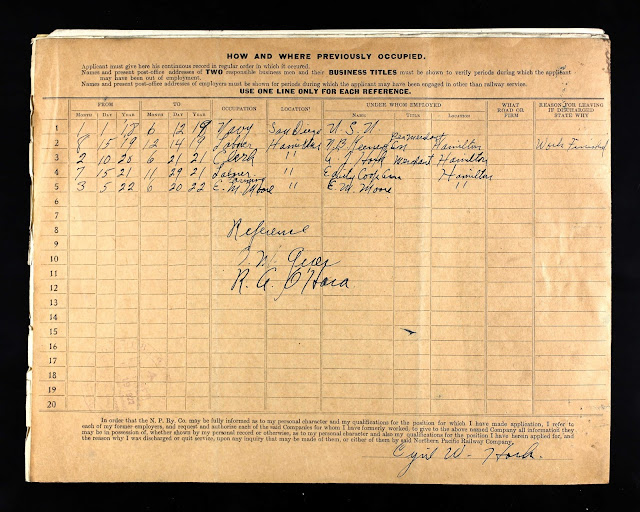 HOW AND WHERE PREVIOUSLY OCCUPIED.
Applicant must give here his continuous record in regular order in which it occured.
Names and present post-office addresses of TWO responsible business men and their BUSINESS TITLES must be shown to verify periods during which the applicant
may have been out of employment.
Names and present post-office addresses of employers must be shown for periods during which the applicant may have been engaged in other than railway service.
USE ONE LINE ONLY FOR EACH REFERENCE.
FROM TO OCCUPATION LOCATION UNDER WHOM EMPLOYED WHAT ROAD OR FIRM REASON FOR LEAVING IF DISCHARGED STATE WHY
MONTH DAY YEAR MONTH DAY YEAR NAME TITLE LOCATION
1 1 1 18 6 12 19 Navy San Diego U. S. N.
2 8 15 19 12 14 19 Labner Hamilton Hamilton Work Finished
3 2 10 20 6 21 21 Clerk " Hork Merchant Hamilton
4 7 15 21 11 29 21 Labner " Equity Coop Assn Hamilton
5 3 5 22 6 20 22 Farming E. M. Moore " E. M. Moore "
6
7
8 Reference
9
10
11 R. A. O'Hara
12
13
14
15
16
17
18
19
20
In order that the N. P. Ry. Co. may be fully informed as to my personal character and my qualifications for the position for which I have made application, I refer to
each of my former employers, and request and authorize each of the said Companies for whom I have formerly worked, to give to the above named Company all information they
may be in possession of, whether shown by my personal record or otherwise, as to my personal character and also my qualifications for the position I have herein applied for, and
the reason why I was discharged or quit service, upon any inquiry that may be made of them, or either of them by said Northern Pacific Railway Company.
Cyril W. Hork.